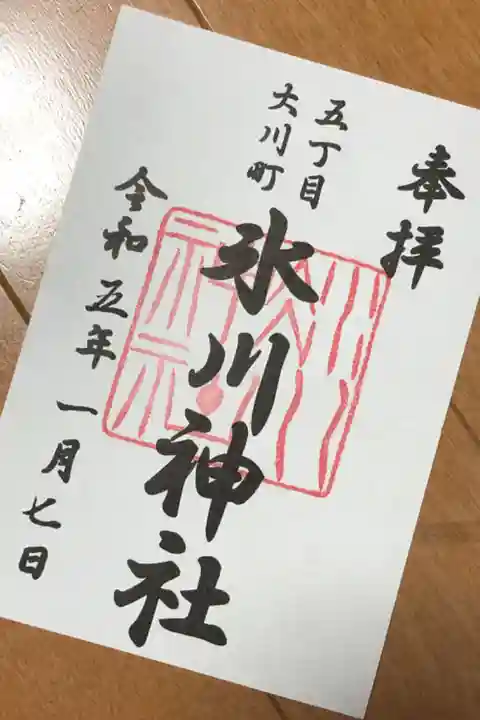 奉拝
五丁目
大川町
氷川神社
令和五年一月七日